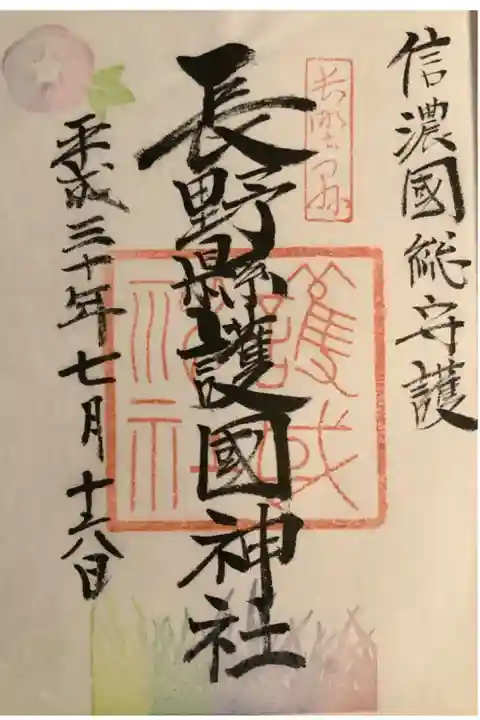 信濃國総守護
長野县
長野縣護國神社
護國神社
平成三十年七月十六日